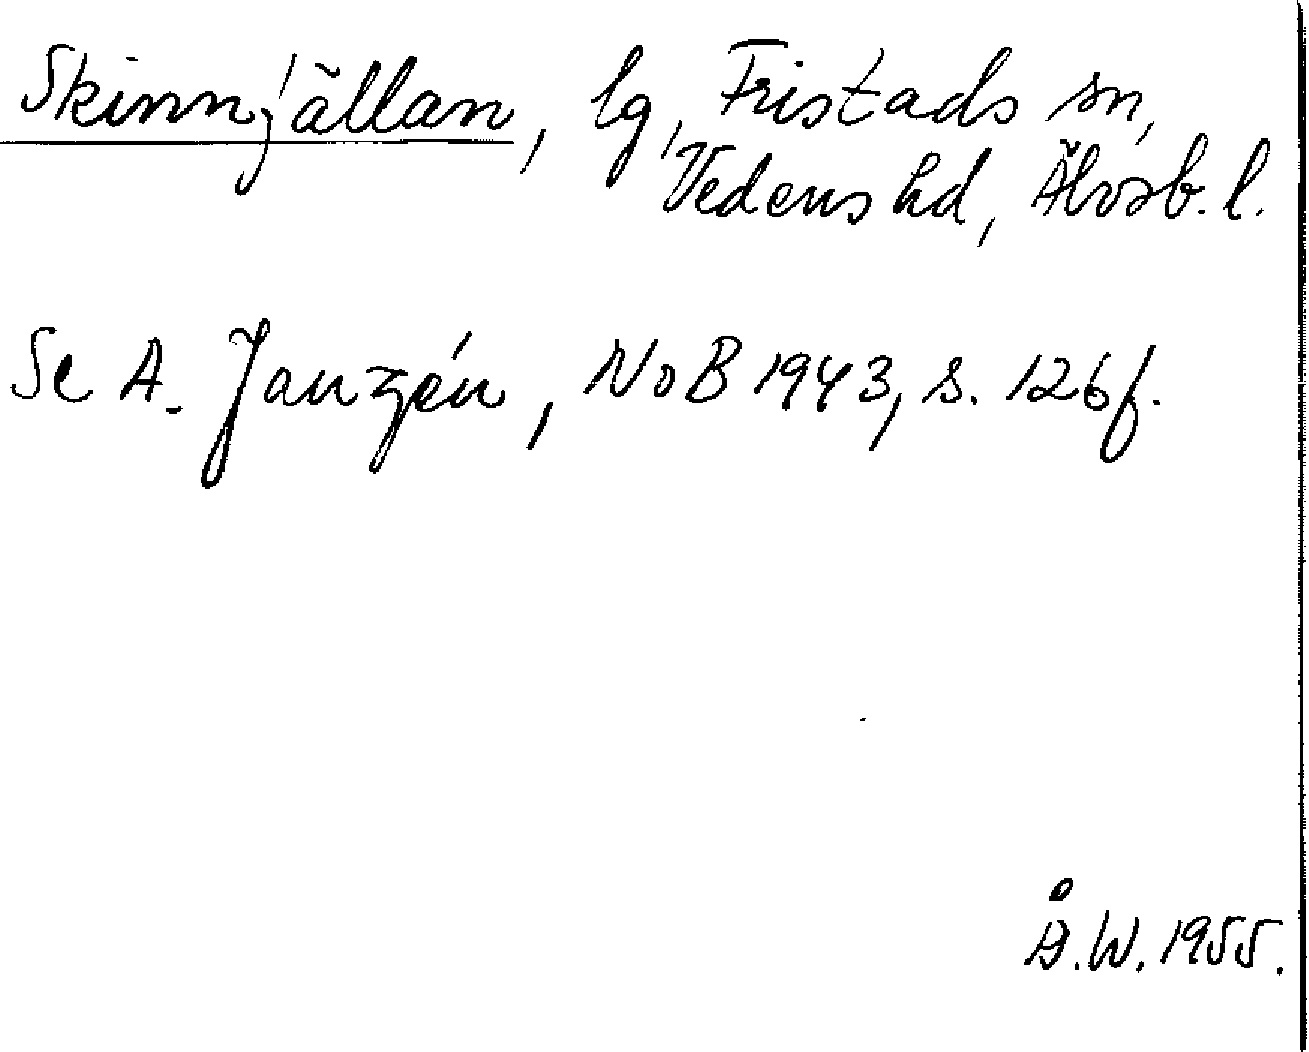 Skinnjällan, lg, Fristads sn,
Vedens hd, Älvsb. l.
Se A. Janzén, NoB 1943, s. 126f.
Å.W. 1955.